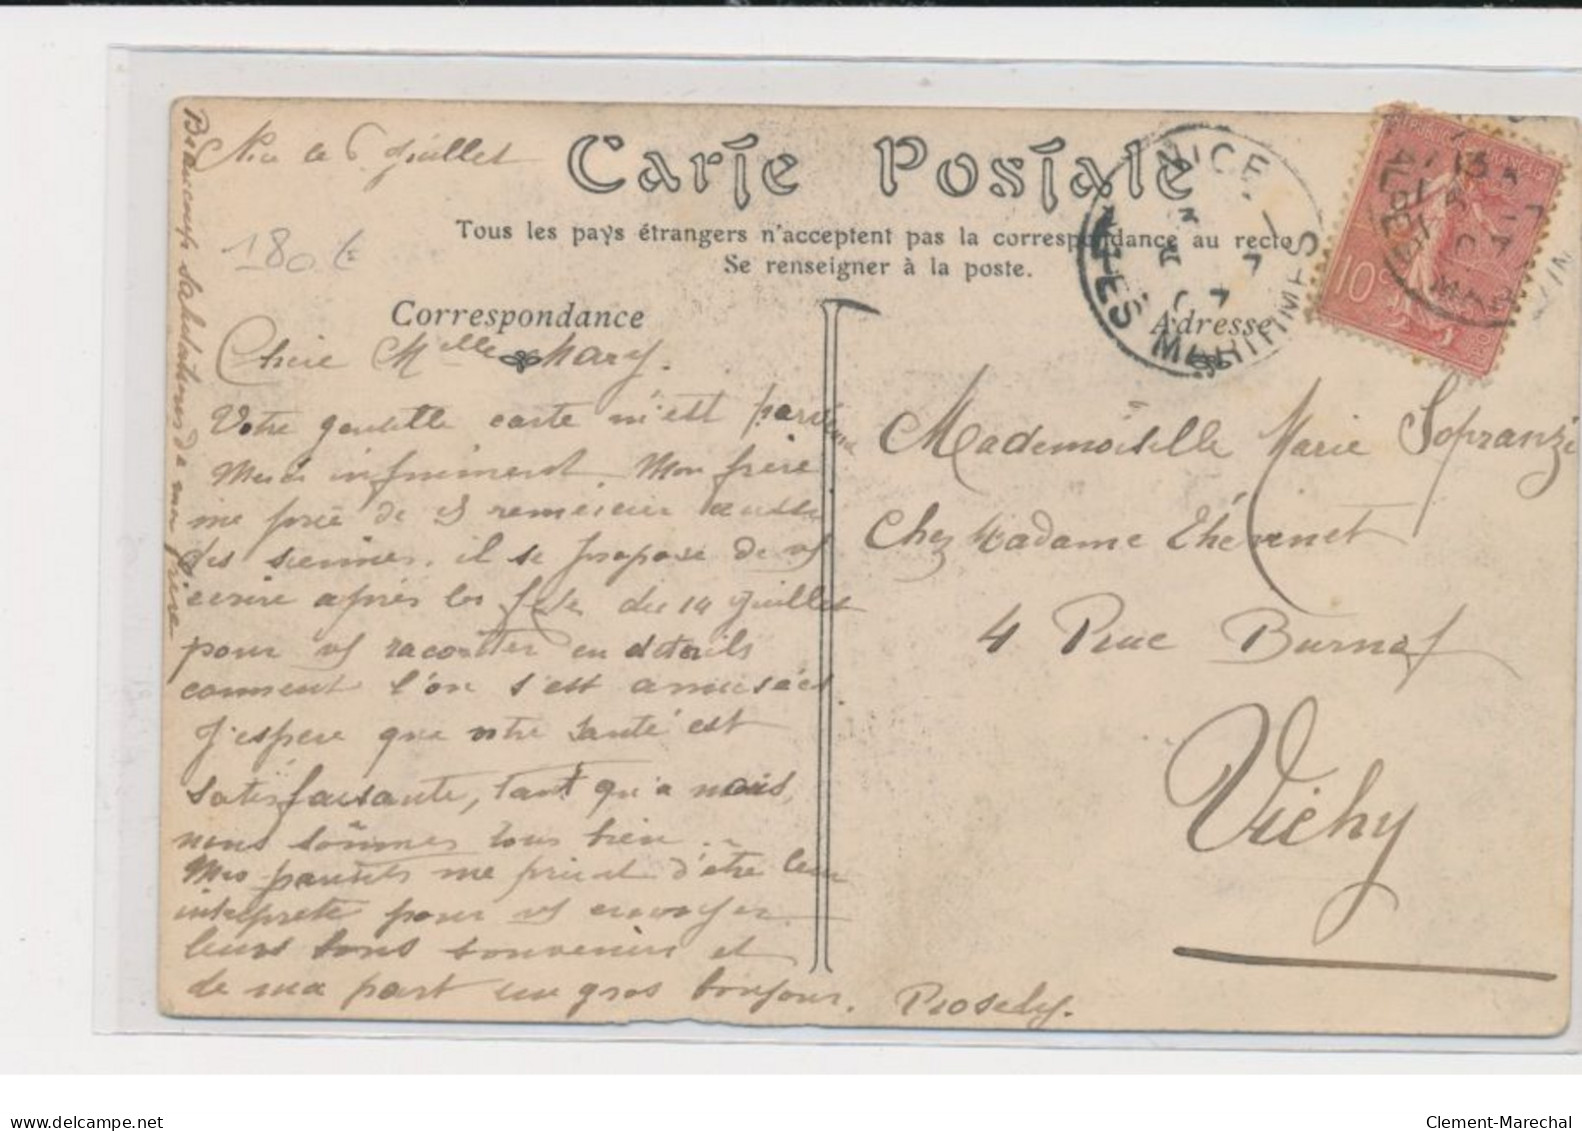 Nice le 6 juillet
Carte Postale
Tous les pays étrangers n'acceptent pas la correspondance au recto
Se renseigner à la poste.
180 €
Correspondance
Adresse
NICE
ALPES MARITIMES
10c
Chère Mlle Mary.
Votre gentille carte m'est parvenue
Merci infiniment. Mon frère
me prie de vs remercier aussi
des siennes. il se propose de vs
écrire après les fêtes du 14 juillet
pour vs raconter en détails
comment l'on s'est amusées.
J'espère que votre santé est
satisfaisante, tant qu'a nous,
nous sômmes tous bien.
Mes parents me prient d'être leur
intreprète pour vs envoyer
leurs bons souvenirs et
de ma part un gros bonjour.
Beaucoup salutations de mon frère
Mademoiselle Marie Sopranzi
Chez Madame Thévenet
4 Rue Burnol
Vichy
delcampe.net
Clement-Marechal